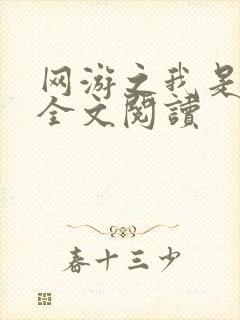 网游之我是
全文閱讀
春十三少